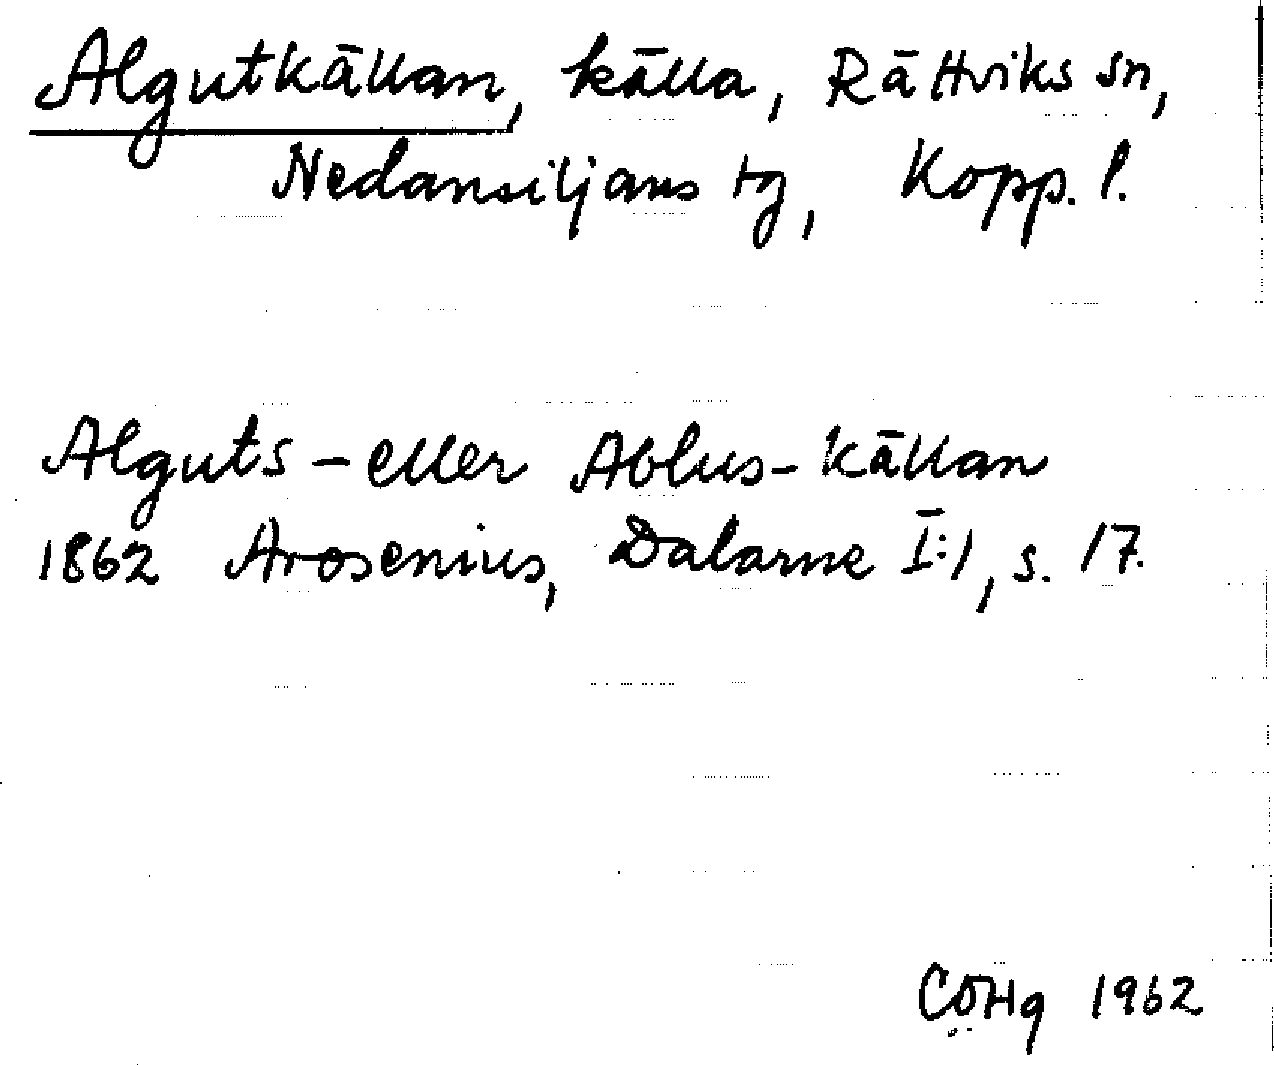 Algutkällan, källa, Rättviks sn,
Nedansiljans tg, Kopp. l.
Alguts- eller Ablus-källan
1862 Arosenius, Dalarne I:1, s. 17.
COHg 1962